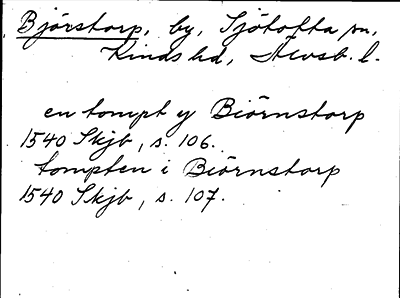 Björstorp, by, Sjötofta sn,
Kinds hd, Älvsb. l.
en tompt y Biörnstorp
1540 Skjb, s. 106.
tompten i Biörnstorp
1540 Skjb, s. 107.